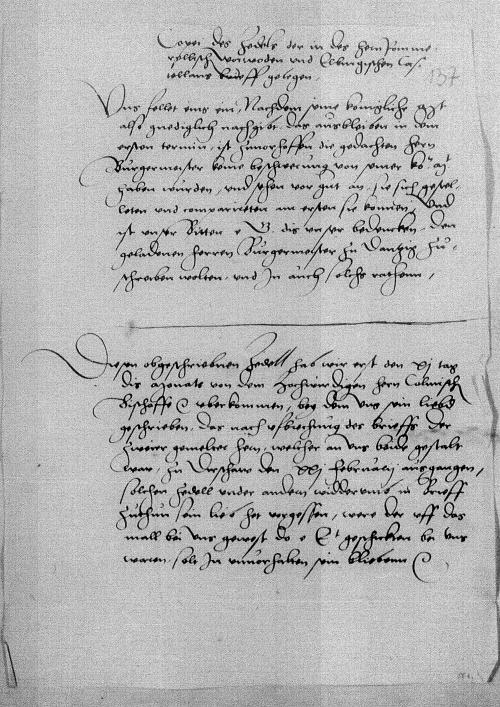 Copei des zedels der in des hern pomme-
rellisch woiwoden und Elbingischen Cas-
tellans brieff gelegen.
137
Uns fellet ein, Nachdem seine konigliche mt
also gnediglich nachgibt das ausbleiben in dem
ersten termin, ist zuvorhoffen die gedachten hern
Burgermeister keine beschwerung von seiner ko mt
haben wurden, und sehen vor gut an, sie sich gestel-
leten und comparireten am ersten sie konnen, Und
ist unser bitten e g. dis unser bedencken, den
geladenen herren Burgermeister zu Dantzig zu-
schreiben wolten, und In auch solchs rathenn,
Diesen obgeschriebnen zedell hab wir erst den xj tag
dis Monats von dem hochwirdigen hern Culmisch
Bischoffe uberkommen, bey dem uns sein lieb
geschrieben, das nach ufbrechung des brieffs der
zweier gemelter hern, welcher an uns beide gestalt
war, zu Dirschaw den xxj Februarij ausgangen,
solchen zedell under andern widderumb in brieff
zuthun sein lieb het vergessen, were der uff das
mall bei uns gewest do e geschickten bei uns
waren, solt In unvorhalten sein blieben